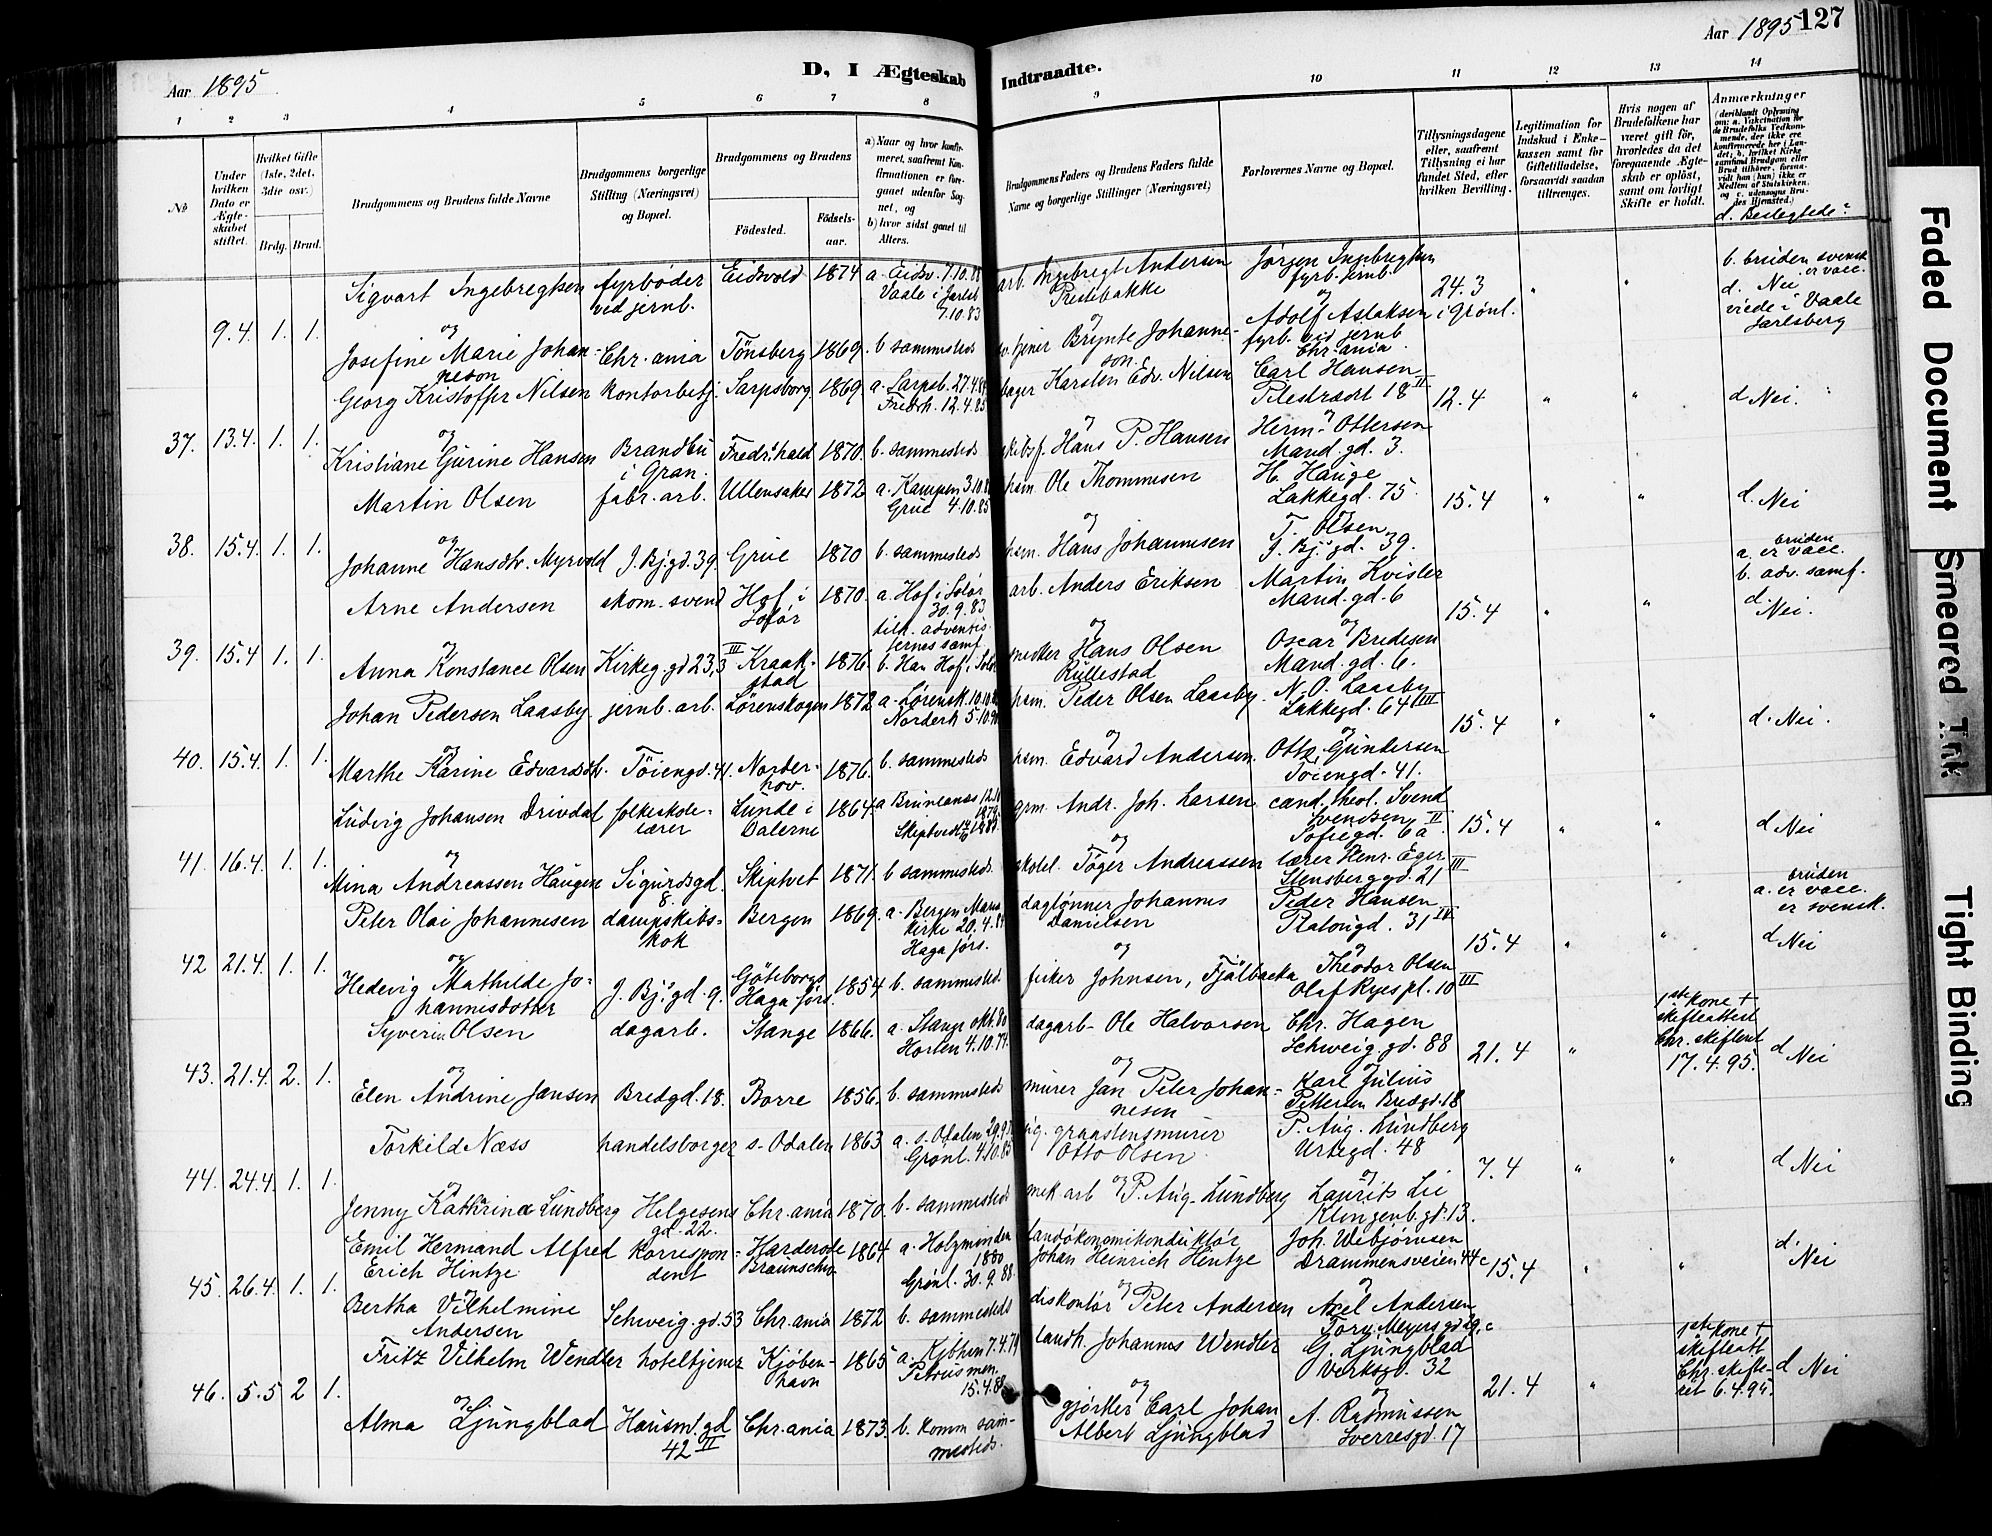 Aar 1895
D, I Ægteskab
Indtraadte.
Aar 1895 127
1 2 3 4 5 6 7 8 9 10 11 12 13 14
№
Under hvilken Dato er Ægteskabet stiftet.
Hvilket Gifte (1ste, 2det, 3die osv.)
Brdg. Brud.
Brudgommens og Brudens fulde Navne
Brudgommens borgerlige Stilling (Næringsvei) og Bopæl.
Brudgommens og Brudens
Fødested.
Fødselsaar.
a) Naar og hvor konfirmeret, saafremt Konfirmationen er foregaaet udenfor Sognet, og
b) hvor sidst gaaet til Alters.
Brudgommens Faders og Brudens Faders fulde Navne og borgerlige Stillinger (Næringsvei)
Forlovernes Navne og Bopæl.
Tillysningsdagene eller, saafremt Tillysning ei har fundet Sted, efter hvilken Bevilling.
Legitimation for Indskud i Enkekassen samt for Giftetilladelse, forsaavidt saadan tiltrænges.
Hvis nogen af Brudefolkene har været gift før, hvorledes da det foregaaende Ægteskab er opløst, samt om lovligt Skifte er holdt.
Anmærkninger
(deriblandt Oplysning om: a. Vakcination for de Brudefolks Vedkommende, der ikke ere konfirmerede her i Landet; b. hvilket Kirkesamfund Brudgom eller Brud tilhører, forsavidt han (hun) ikke er Medlem af Statskirken, og c. udensogns Brudes Hjemsted.)
d. Beslegtede?
9.4. 1. 1.
Sigvart Ingebregtsen fyrbøder ved jernb. Eidsvold 1874 a. Eidsv. 7.10.88
Vaale i Jarlsb. 7.10.83
arb. Ingebregt Andersen Prestebakke
Jørgen Ingebregtsen fyrb. jernb.
24.3 i Grønl.
b. bruden svensk er vacc.
d. Nei
viede i Vaale Jarlsberg
og
Josefine Marie Johanneson Chr.ania Tønsberg 1869. b sammesteds
Brynte Johanneson
Adolf Aslaksen fyrb. vid jernb Chr.ania.
37. 13.4. 1. 1.
Georg Kristoffer Nilsen kontorbetj. Sarpsborg 1869. a. Sarpsb. 27.4.84
Fredrh. 12.4.85
Karsten Edv. Nilsen
Carl Hansen Pilestrædt 18 II
12.4
d Nei.
og
Kristiane Gurine Hansen Brandbu i Gran. Fredr.hald 1870. b. sammesteds
skibsf. Hans P. Hansen
Herm. Ottersen Mand.gd. 3.
38. 15.4. 1. 1.
Martin Olsen fabr. arb. Ullensaker 1872 a. Kampen 3.10.8
Grue 4.10.85
hsm. Ole Thommesen
H. Hauge Lakkegd. 75.
15.4
d. Nei
og
Johanne Hansdtr. Myrvold J. Bj. gd. 39. Grue 1870 b. sammesteds
hsm. Hans Johannesen
T. Olsen J. Bj. gd. 39.
39. 15.4 1. 1.
Arne Andersen skom. svend Hof i Solør 1870. a. Hof i Solør 30.9.83
tilh. adventisternes samf.
arb. Anders Eriksen
Martin Kvisler Mand.gd. 6
15.4
bruden
a. er vacc.
b. adv. samf.
d. Nei.
og
Anna Konstance Olsen Kirkeg.gd 23,3 III Kraakstad 1876. b. Han Hof i Solør
snedker Hans Olsen Rullestad
Oscar Bredesen Mand.gd. 6.
40. 15.4. 1. 1.
Johan Pedersen Laasby jernb. arb. Lørenskogen 1872 a. Lørensk. 10.10.8
Norderh 5.10.90
hsm. Peder Olsen Laasby.
N. O. Laasby Lakkegd. 64 III
15.4
d. Nei.
og
Marthe Karine Edvardsdtr. Töiengd. 41. Norderhov. 1876. b. sammesteds
hsm. Edvard Andersen.
Otto Gundersen Töiengd. 41.
41. 16.4. 1. 1.
Ludvig Johansen Drivdal folkeskolelærer Lunde i Dalerne 1864. a Brunlanæs 12.10 1879.
Skiptvedt 1888.
grm. Andr. Joh. Larsen.
cand. theol. Svend Svendsen Sofiegd. 6a II
15.4
d Nei
og
Mina Andreassen Haugen Sigurdsgd. 8. Skiptvet 1871. b sammesteds.
Töger Andreassen
lærer Henr. Eger Stensberggd. 21 III
42 21.4. 1. 1.
Peter Olai Johannesen dampskibskok Bergen 1869. a. Bergen Marie kirke 20.4.84
Haga förs.
dagtönner Johannes Danielsen
Peder Hansen Platougd. 31 IV
15.4
bruden
a. er vacc.
er svensk.
d Nei
og
Hedevig Mathilde Johannisdotter J. Bj. gd. 9. Göteborgs Haga förs. 1854 b. sammested.
fisker Johnsen, Fjälbacka
Theodor Olsen Olaf Ryes pl. 10 III
43. 21.4. 2. 1.
Syverin Olsen dagarb. Stange 1866. a. Stange okt. 80
Horten 4.10.74.
dagarb- Ole Halvorsen
Chr. Hagen Schweig gd. 88
21.4
1ste kone † skifteattest Chr. skifteret 17.4.95.
d Nei
og
Elen Andrine Jansen Bredgd. 18. Borre 1856. b. sammesteds
murer Jan Peter Johannesen
Karl Julius Pettersen Bredgd. 18
44. 24.4. 1. 1.
Torkild Næss handelsborger s. Odalen 1863 a. s. Odalen 29.9.
Grønl. 4.10.85
graastensmurer Otto Olsen.
P. Aug. Lundberg Urtegd. 48
7.4
d Nei
og
Jenny Kathrine Lundberg Helgesens gd. 22. Chr.ania 1870. b. sammesteds
mek. arb P. Aug. Lundberg
Laurits Lie Klingenb.gd. 13.
45. 26.4. 1. 1.
Emil Hermand Alfred Erich Hintze korrespondent Harderode Braunschw. 1864 a. Holzminden 1880
Grønl. 30.9.88.
landökonomikondüktör Johan Heinrich Hintze
Joh. Wibjörnsen Drammensveien 44c
15.4
d. Nei
og
Bertha Vilhelmine Andersen Schweig.gd. 53 Chr.ania 1872 b. sammesteds
diskontör Peter Andersen
Axel Andersen Tory Meyers gd 29, c
46. 5.5 2 1.
Fritz Vilhelm Wendler hoteltjener Kjöbenhavn 1865 a. Kjbhvn 7.4.79
Petrus men. 15.4.88
landh. Johannes Wendler
G. Ljungblad Verksgd. 32
21.4
1ste kone † skifteatt. Chr. skifteret 6.4.95.
d Nei
og
Alma Ljungblad Hausm.gd 42 II Chr.ania 1873. b. komm. sammesteds.
gjørtler Carl Johan Albert Ljungblad
A. Rasmussen Sverresgd. 17
Faded Document
Smeared Ink
Tight Binding